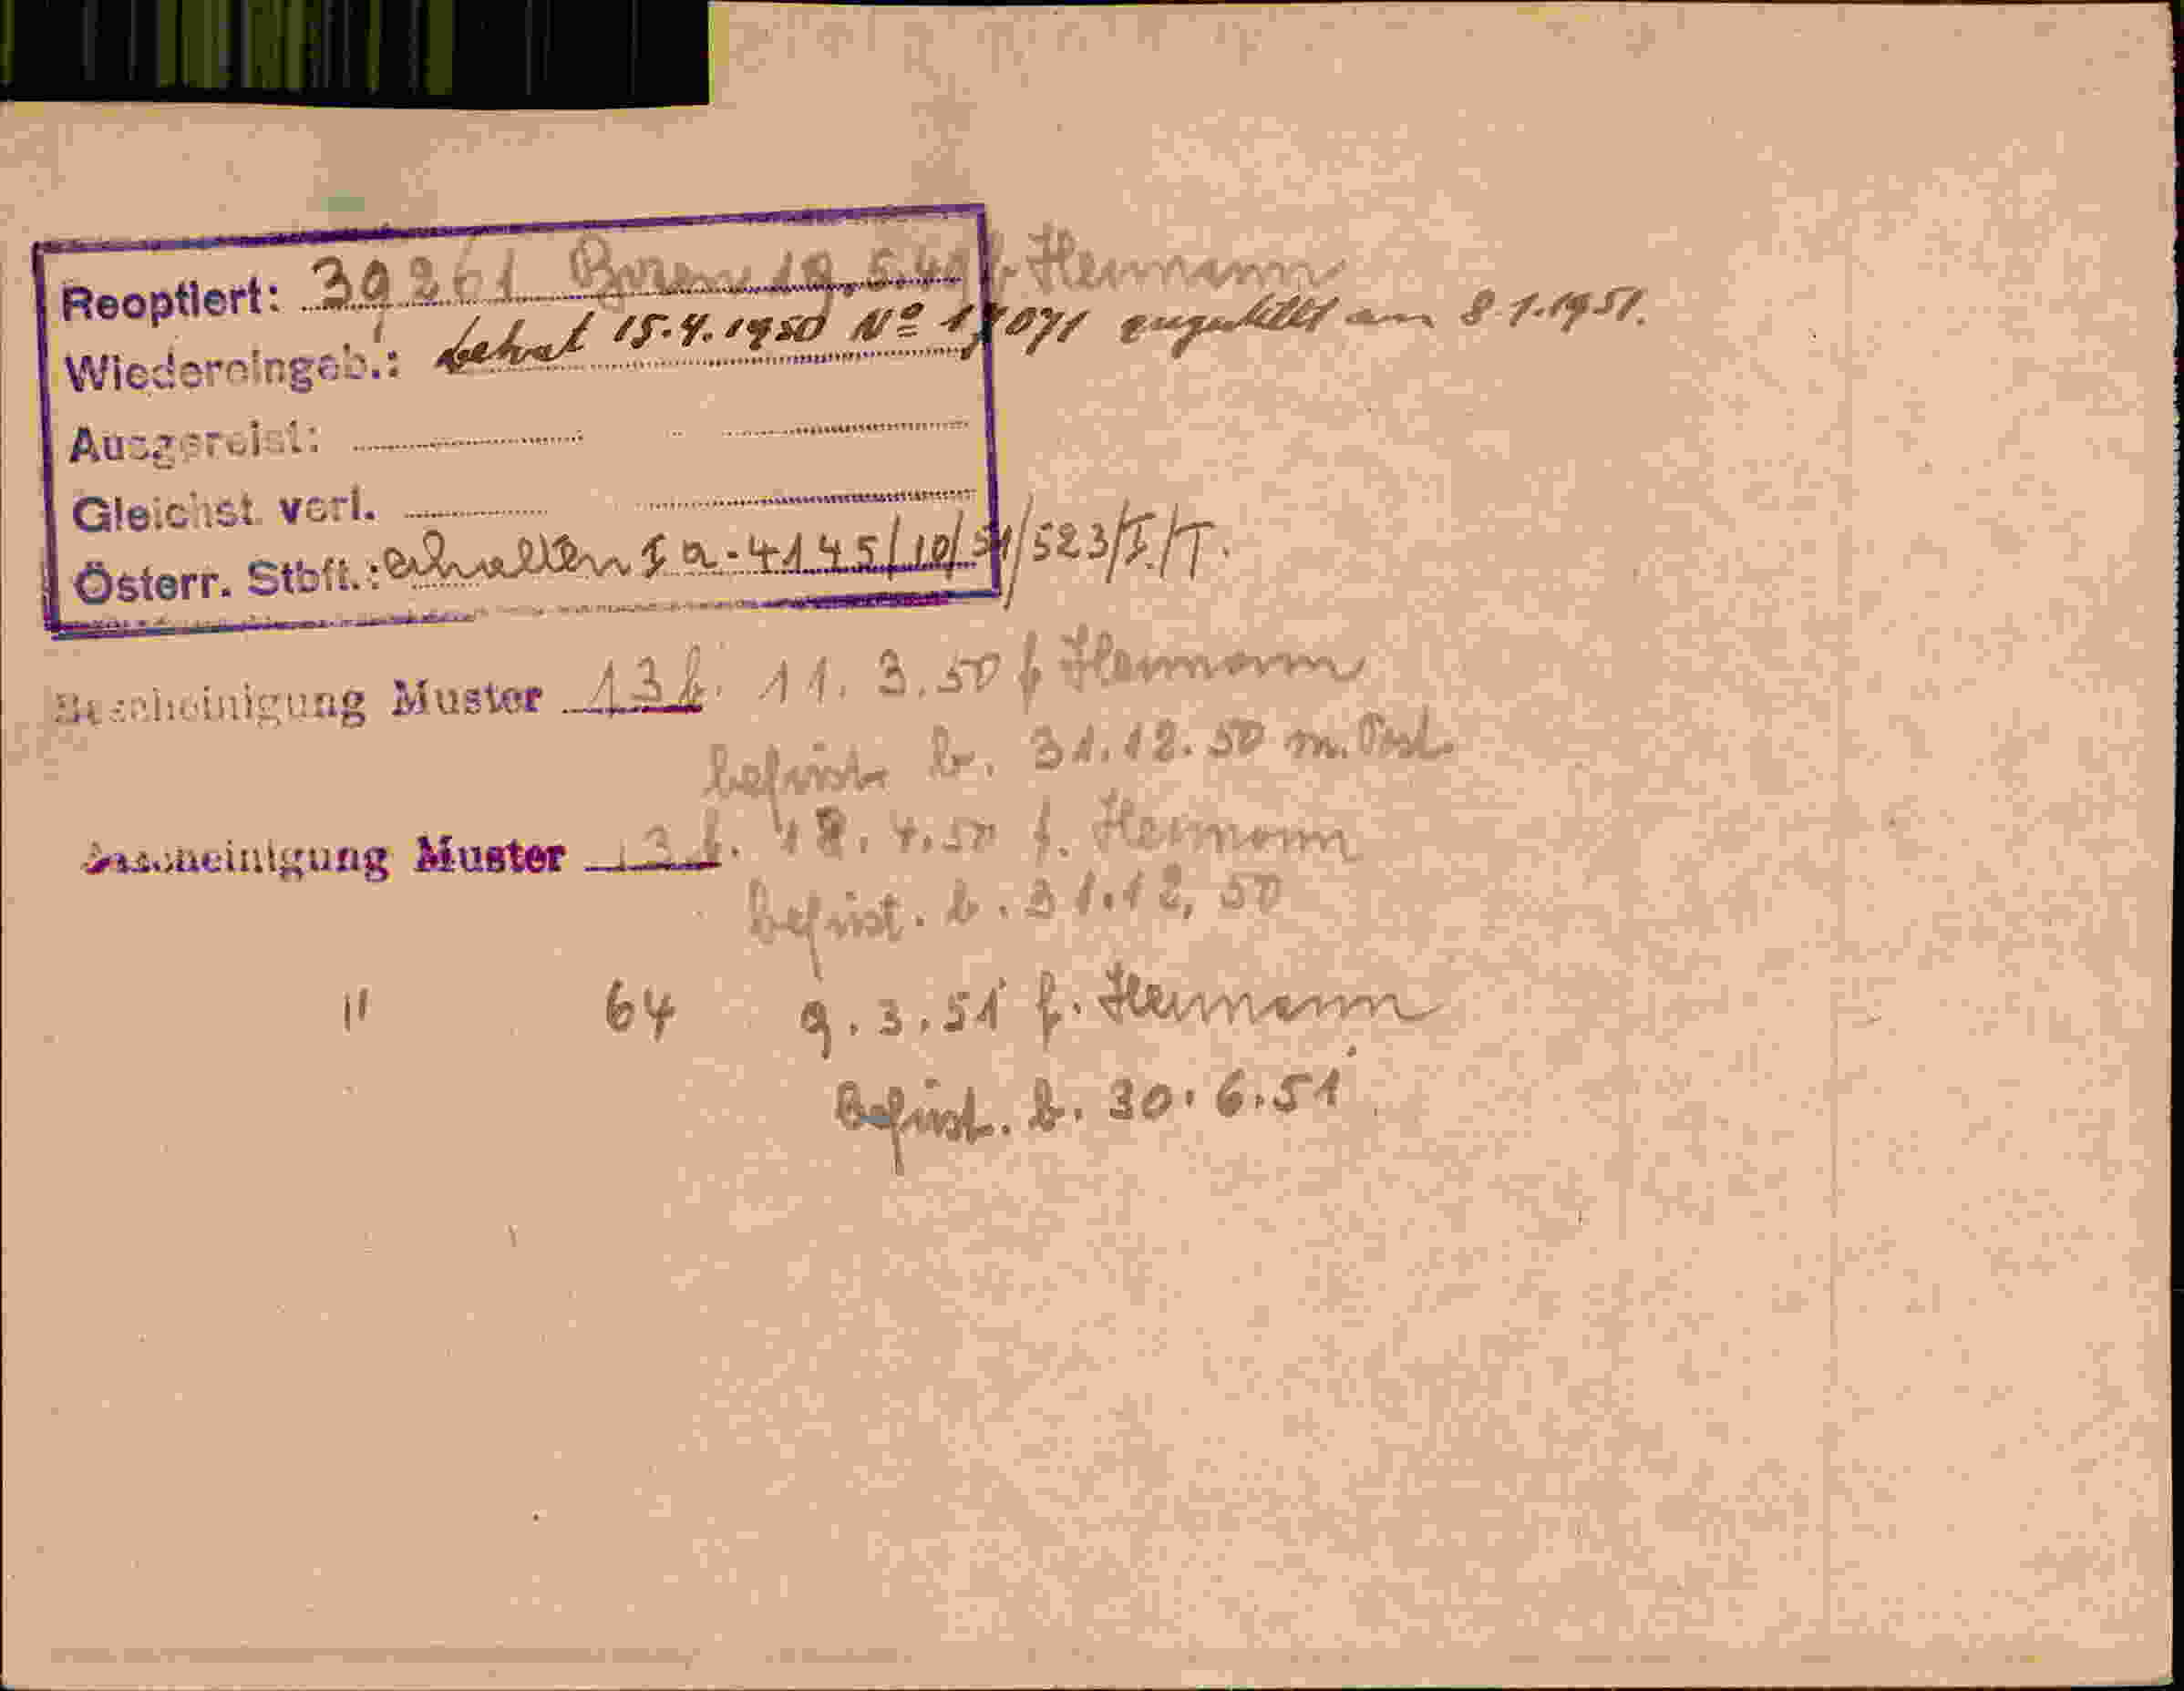 Reoptiert: 39261 Bozen 19.5.49 f. Hermann
Wiedereingeb.: Dekret 15.4.1950 Nº 17071 zugestellt am 8.1.1951.
Ausgereist:
Gleichst. verl.
Österr. Stbft.: erhalten I a-4145/10/51/523/I./T.
Bescheinigung Muster 13b. 11.3.50 f Hermann
befrist. b. 31.12.50 m. Post.
Bescheinigung Muster 13b. 18.4.50 f. Hermann
befrist. b. 31.12,50
" 64 9.3.51 f. Hermann
Befrist. b. 30.6.51